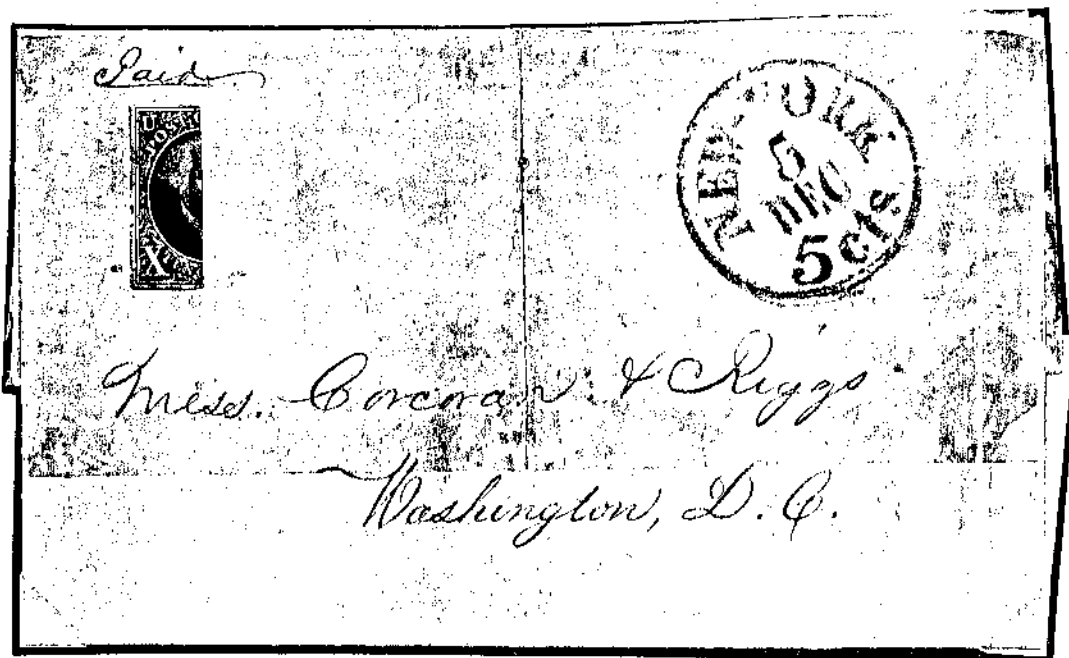 Paid
U
POST
X
NEW YORK
5
DEC
5 cts
Mess. Corcoran & Riggs
Washington, D. C.